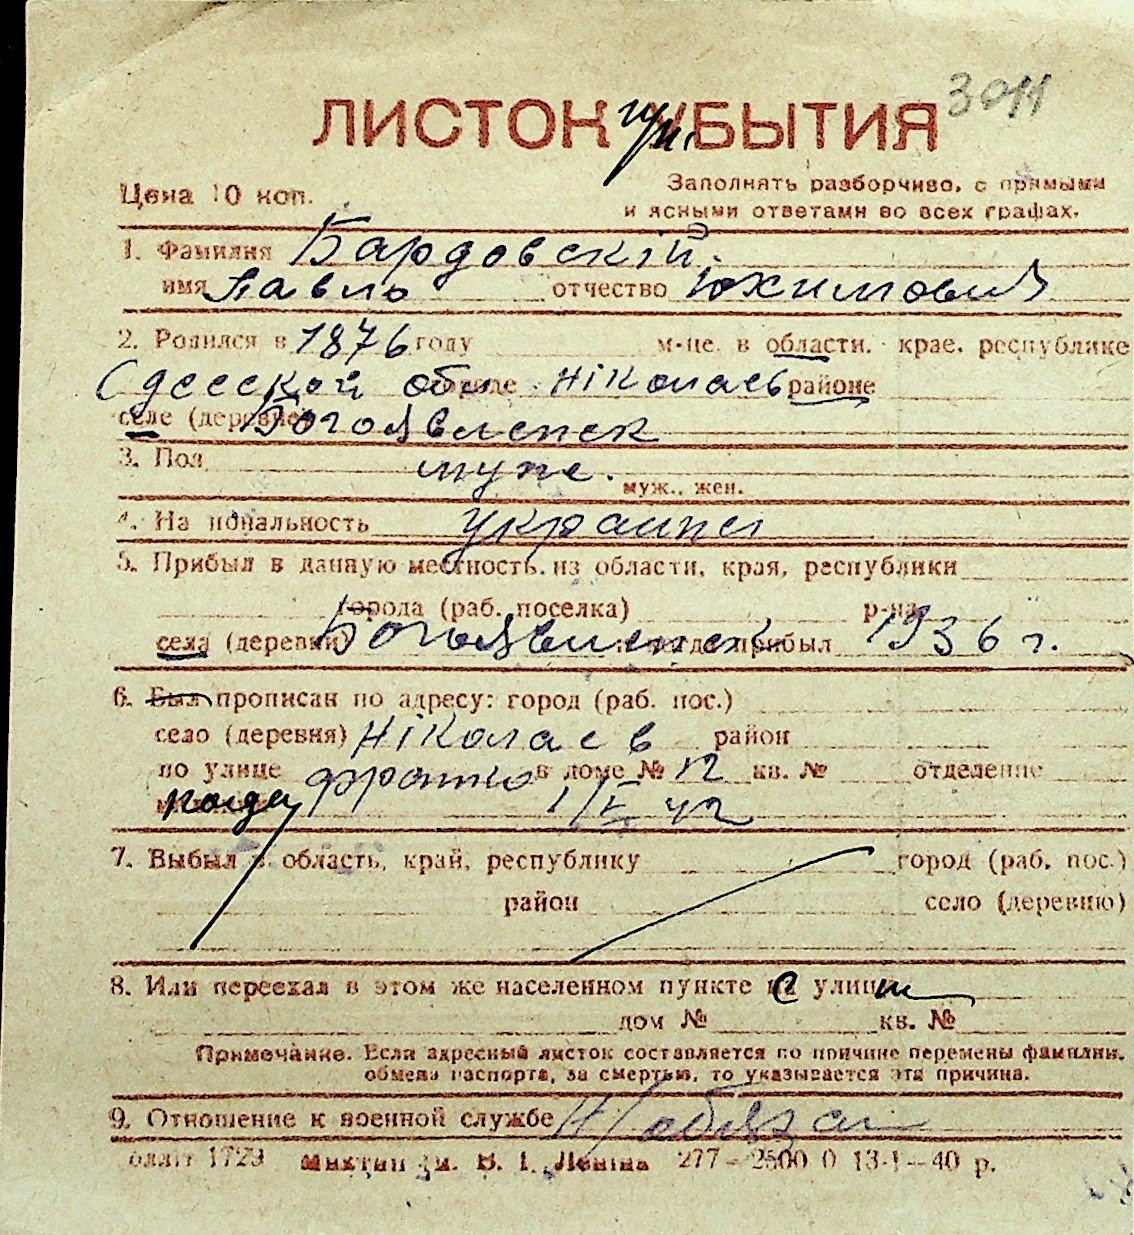 3011
ЛИСТОК при УБЫТИЯ
Цена 10 коп.
Заполнять разборчиво, с прямыми
и ясными ответами во всех графах.
1. Фамилия Бардовскій
имя Павло отчество Юхимович
2. Родился в 1876 году м-це. в области. крае, республике
Одесской обл. городе Ніколаев районе
селе (деревне) Богоявленск
3. Пол муж. муж., жен.
4. Национальность украинец
5. Прибыл в данную местность из области, края, республики
города (раб. поселка) р-на
села (деревни) Богоявленск и когда прибыл 1936 г.
6. Был прописан по адресу: город (раб. пос.)
село (деревня) Ніколаев район
по улице Франко в доме № 12 кв. № отделение
когда 1/V 42
7. Выбыл в область, край, республику город (раб. пос.)
район село (деревню)
8. Или переехал в этом же населенном пункте с улицы
дом № кв. №
Примечание. Если адресный листок составляется по причине перемены фамилии,
обмена паспорта, за смертью, то указывается эта причина.
9. Отношение к военной службе Н/обязан
1723 В. І. Леніна 277—2500 0 13-1—40 р.